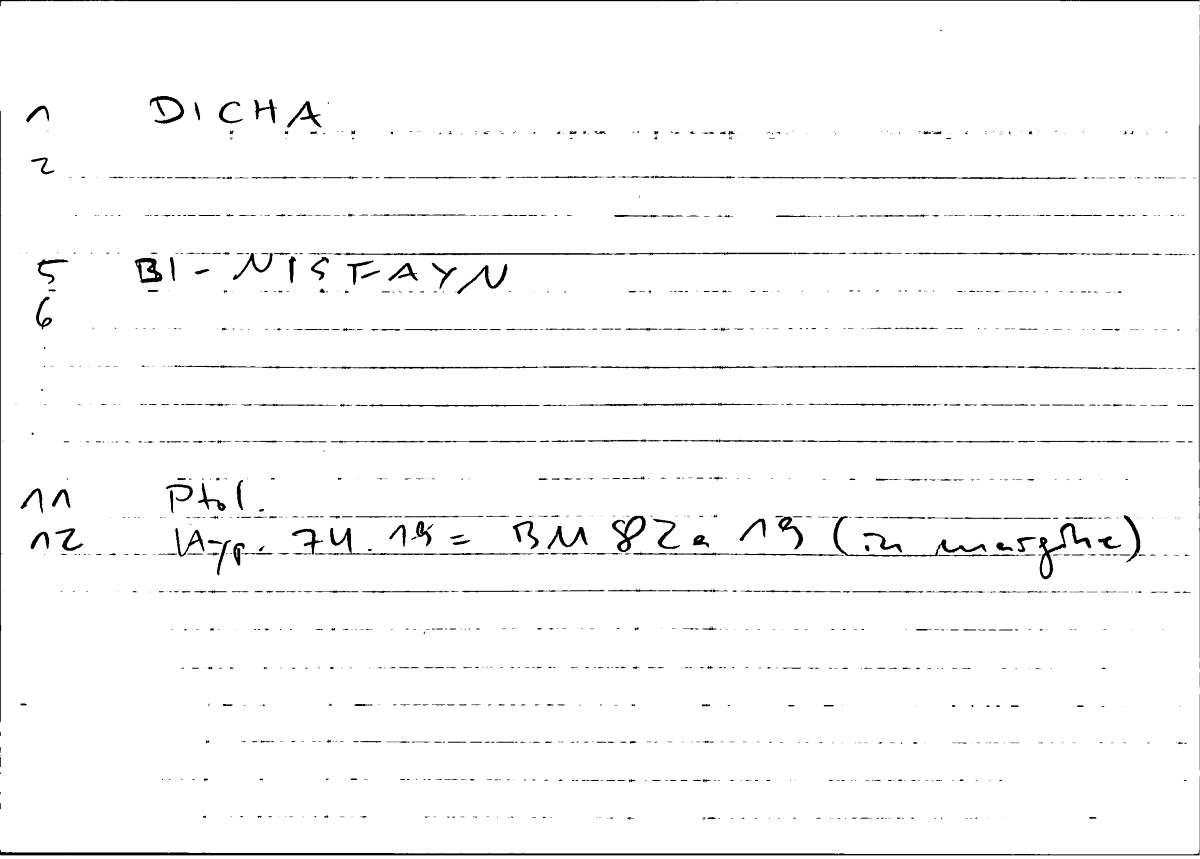 1 DICHA
2
5 BI-NISFAYN
6
11 Ptol.
12 Hyp. 74.19 = BM 82a 19 (in margine)